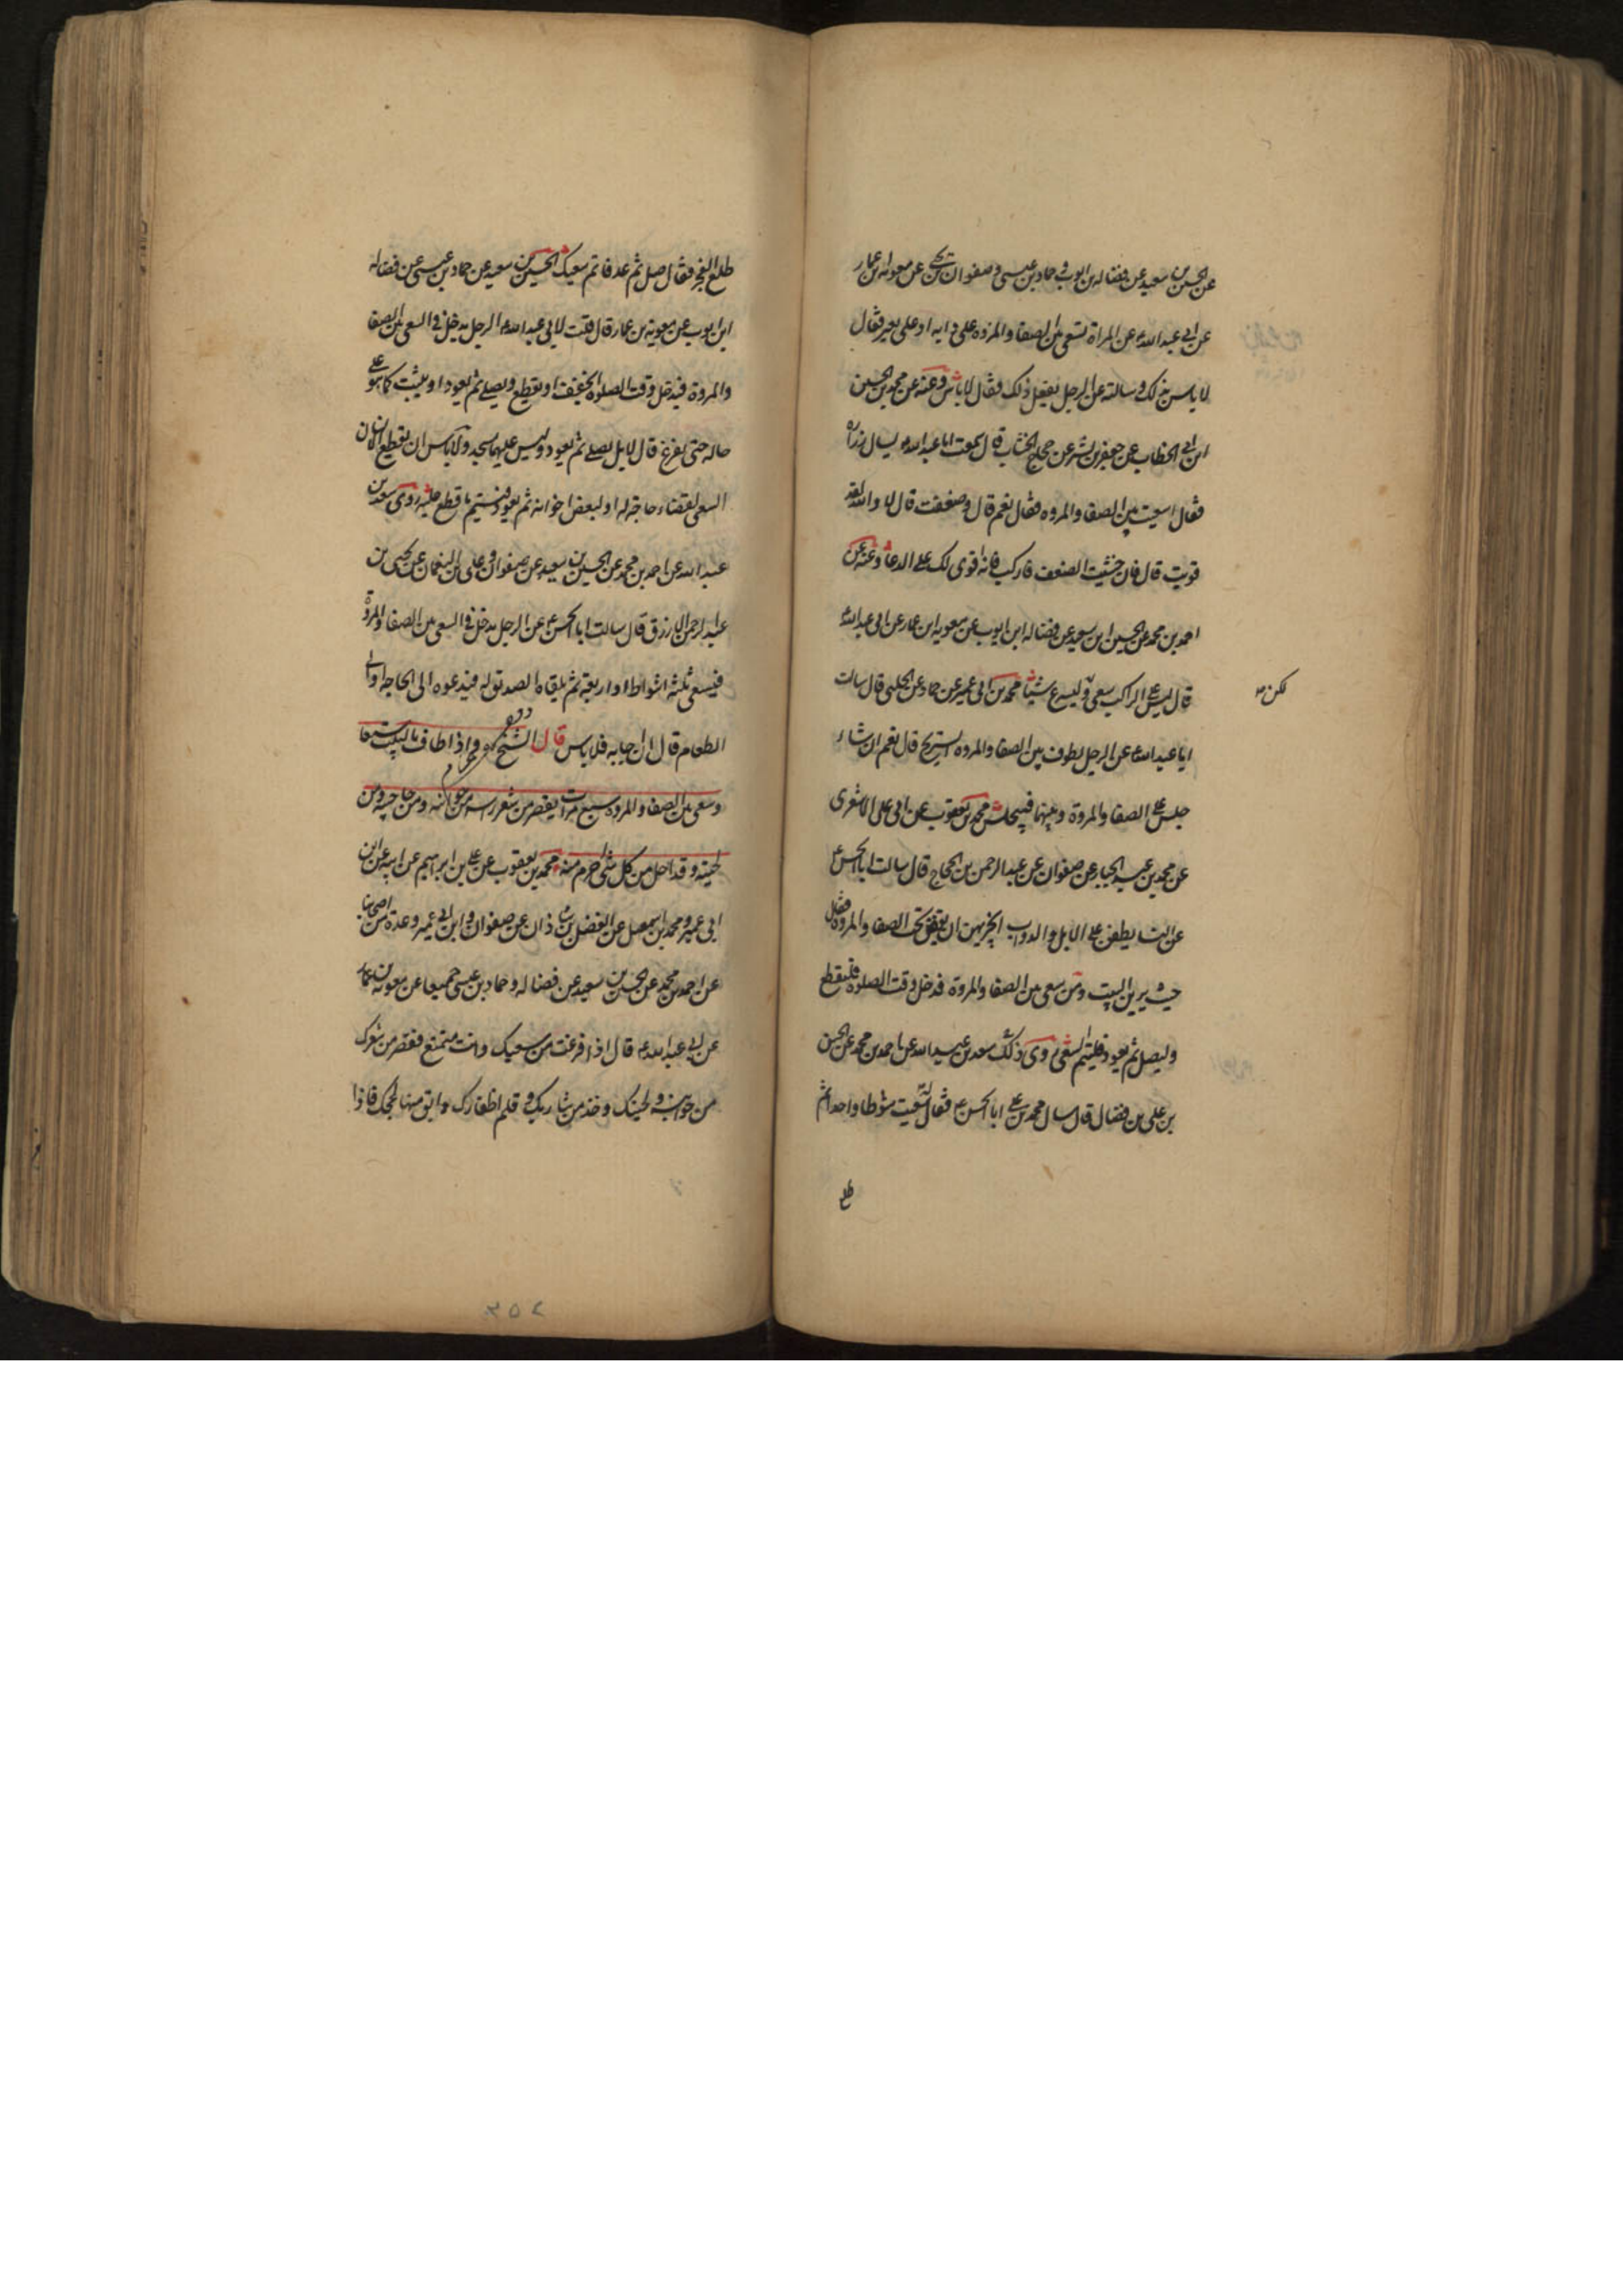 عن الحسين بن سعيد عن فضاله بن ايوب و حماد بن عيسى و صفوان بن يحيى عن معويه بن عمار
عن ابي عبدالله ع عن المراة تسعى بين الصفا والمروه على دابه او على بعير فقال
لا باس بذلك و سالته عن الرجل يفعل ذلك فقال لا باس وعنه عن محمد بن الحسين
ابن ابي الخطاب عن جعفر بن بشير عن حجاج الخشاب قال سمعت ابا عبدالله ع يسال زراره
فقال اسعيت بين الصفا والمروه فقال نعم قال وضعفت قال لا والله لقد
قويت قال فان خشيت الضعف فاركب فانه اقوى لك على الدعا وعنه عن
احمد بن محمد عن الحسين ابن سعيد عن فضاله ابن ايوب عن معويه ابن عمار عن ابي عبدالله ع
قال ليس على الراكب سعى و ليسرع شيئا محمد بن ابي عمير عن حماد عن الحلبي قال سالت
لكن
ابا عبدالله ع عن الرجل يطوف بين الصفا والمروه ايستريح قال نعم ان شاء
جلس على الصفا والمروة وبينهما فيجلس محمد بن يعقوب عن ابي على الاشعرى
عن محمد بن عبد الجبار عن صفوان عن عبد الرحمن بن الحجاج قال سالت ابا الحسن ع
عن النسا يطفن على الابل والدواب ايجزيهن ان يقفن تحت الصفا والمروه فقال
حيث يرين البيت ومن سعى بين الصفا والمروة فدخل وقت الصلوه فليقطع
وليصل ثم يعود فليتم السعى روى ذلك سعد بن عبيد الله عن احمد بن محمد عن الحسن
بن على بن فضال قال سال محمد بن على ابا الحسن ع فقال له سعيت شوطا واحدا ثم
طلع
طلع الفجر فقال صل ثم عد فاتم سعيك الحسين بن سعيد عن حماد بن عيسى عن فضاله
ابن ايوب عن معويه بن عمار قال قلت لابي عبدالله ع الرجل يدخل في السعى بين الصفا
والمروة فيدخل وقت الصلوة ايخفف او يقطع ويصلي ثم يعود او يثبت كما هو على
حاله حتى يفرغ قال لا بل يصلي ثم يعود وليس عليهما مسجد ولا باس ان يقطع الانسان
السعى لقضاء حاجة له او لبعض اخوانه ثم يعود فيتم ما قطع عليه روى سعد بن
عبد الله عن احمد بن محمد عن الحسين بن سعيد عن صفوان و على بن النعمان عن يحيى بن
عبد الرحمن الازرق قال سالت ابا الحسن ع عن الرجل يدخل في السعى بين الصفا والمروة
فيسعى ثلثه اشواط او اربعة ثم يلقاه الصديق له فيدعوه الى الحاجه او الى
الطعام قال ان اجابه فلا باس قال الشيخ ره واذا طاف بالبيت سبعا
وسعى بين الصفا والمروه سبع مرات يقصر من شعر راسه من جوانبه ومن حاجبيه ومن
لحيته وقد احل من كل شئ احرم منه محمد بن يعقوب عن على بن ابراهيم عن ابيه عن ابن
ابي عمير ومحمد بن اسمعيل عن الفضل بن شاذان عن صفوان و ابن ابي عمير وعدة من اصحابنا
عن احمد بن محمد عن الحسين بن سعيد عن فضاله و حماد بن عيسى جميعا عن معويه بن عمار
عن ابي عبدالله ع قال اذا فرغت من سعيك وانت متمتع فقصر من شعرك
من جوانبه و لحيتك وخذ من شاربك و قلم اظفارك وابق منها لحجك فاذا
۲۵۲